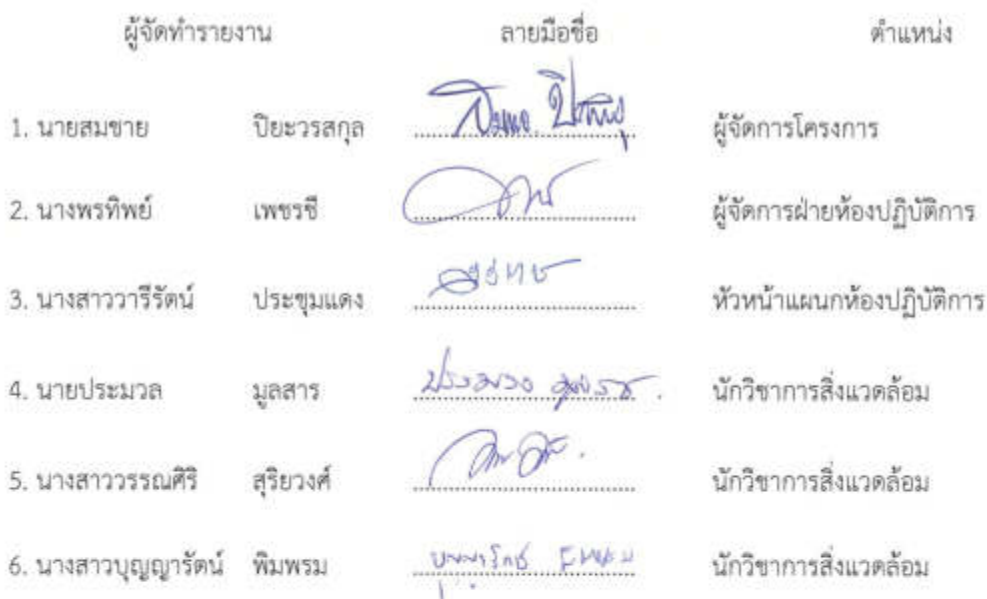 ผู้จัดทำรายงาน ลายมือชื่อ ตำแหน่ง
1. นายสมชาย ปิยะวรสกุล ผู้จัดการโครงการ
2. นางพรทิพย์ เพชรชี ผู้จัดการฝ่ายห้องปฏิบัติการ
3. นางสาววารีรัตน์ ประชุมแดง หัวหน้าแผนกห้องปฏิบัติการ
4. นายประมวล มูลสาร ประมวล มูลสาร นักวิชาการสิ่งแวดล้อม
5. นางสาววรรณศิริ สุริยวงศ์ นักวิชาการสิ่งแวดล้อม
6. นางสาวบุญญารัตน์ พิมพรม นักวิชาการสิ่งแวดล้อม